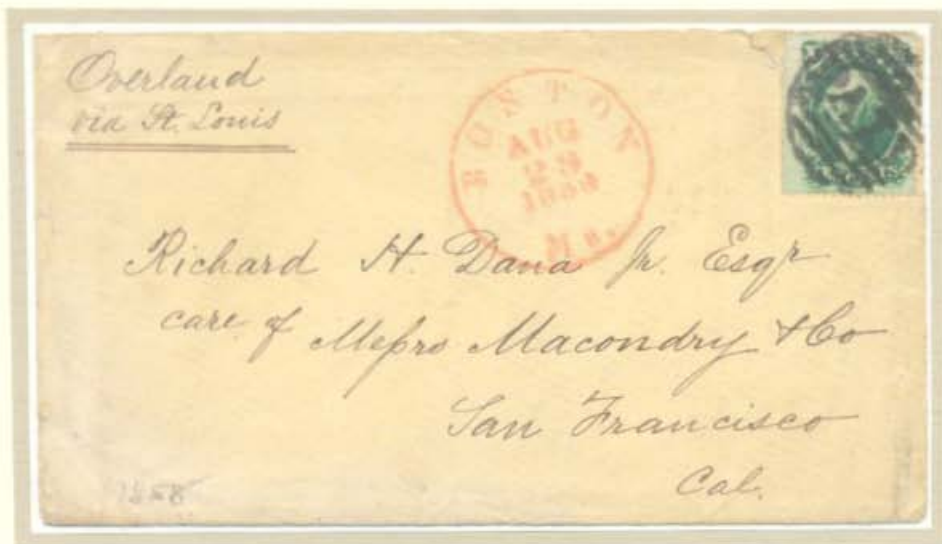 Overland
via St. Louis
BOSTON
AUG
29
Ms.
Richard H. Dana Jr. Esqr
care of Messrs Macondry & Co
San Francisco
Cal.